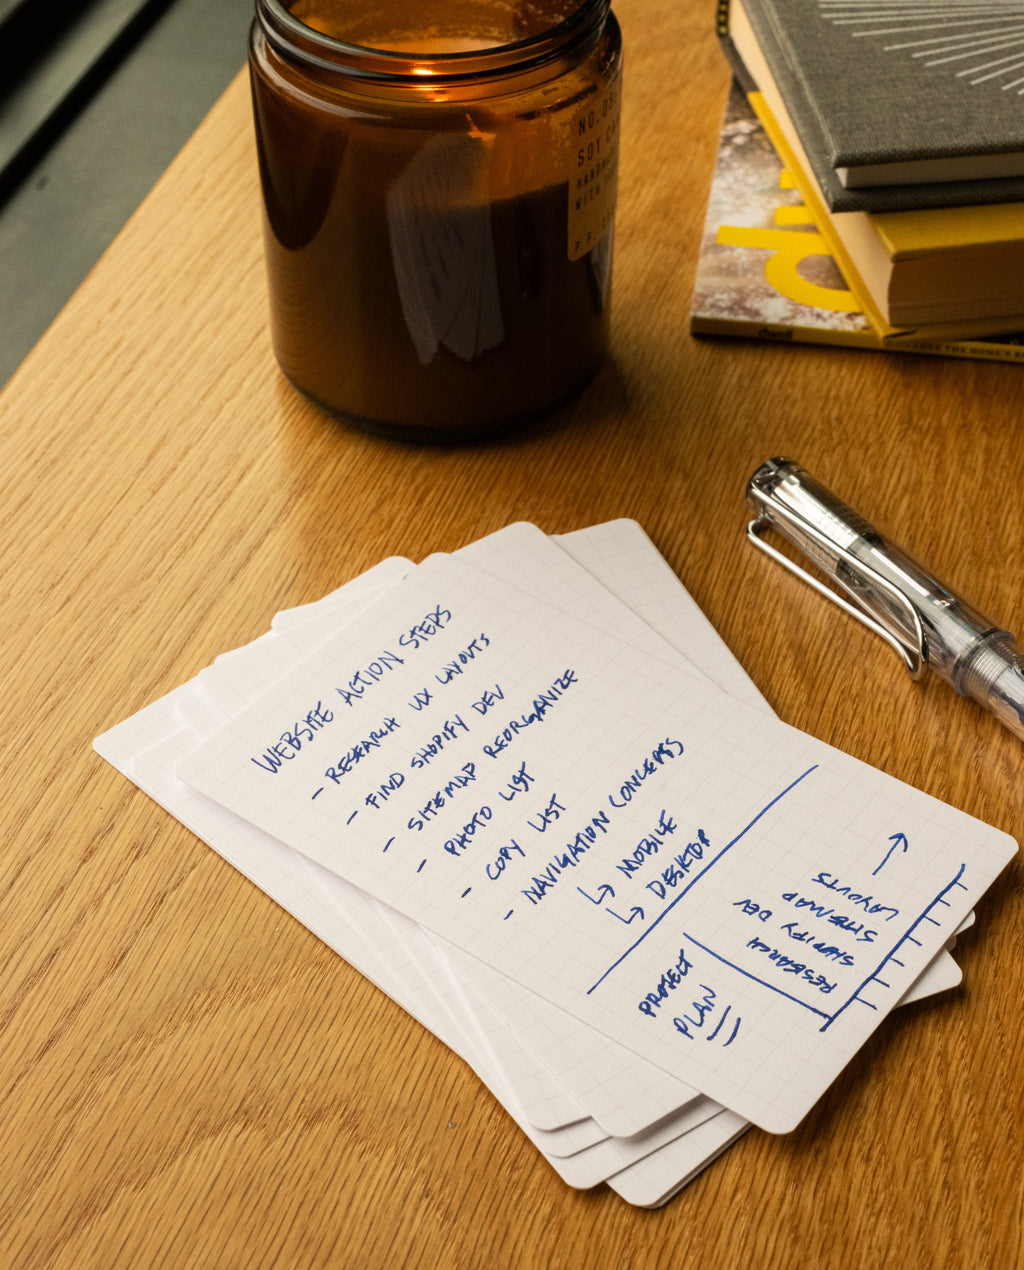 WEBSITE ACTION STEPS
- RESEARCH UX LAYOUTS
- FIND SHOPIFY DEV
- SITEMAP REORGANIZE
- PHOTO LIST
- COPY LIST
- NAVIGATION CONCEPTS
↳ MOBILE
↳ DESKTOP
PROJECT
PLAN
RESEARCH
SHOPIFY DEV
SITEMAP
LAYOUTS
NO. 
SOY
P.F.
dwell